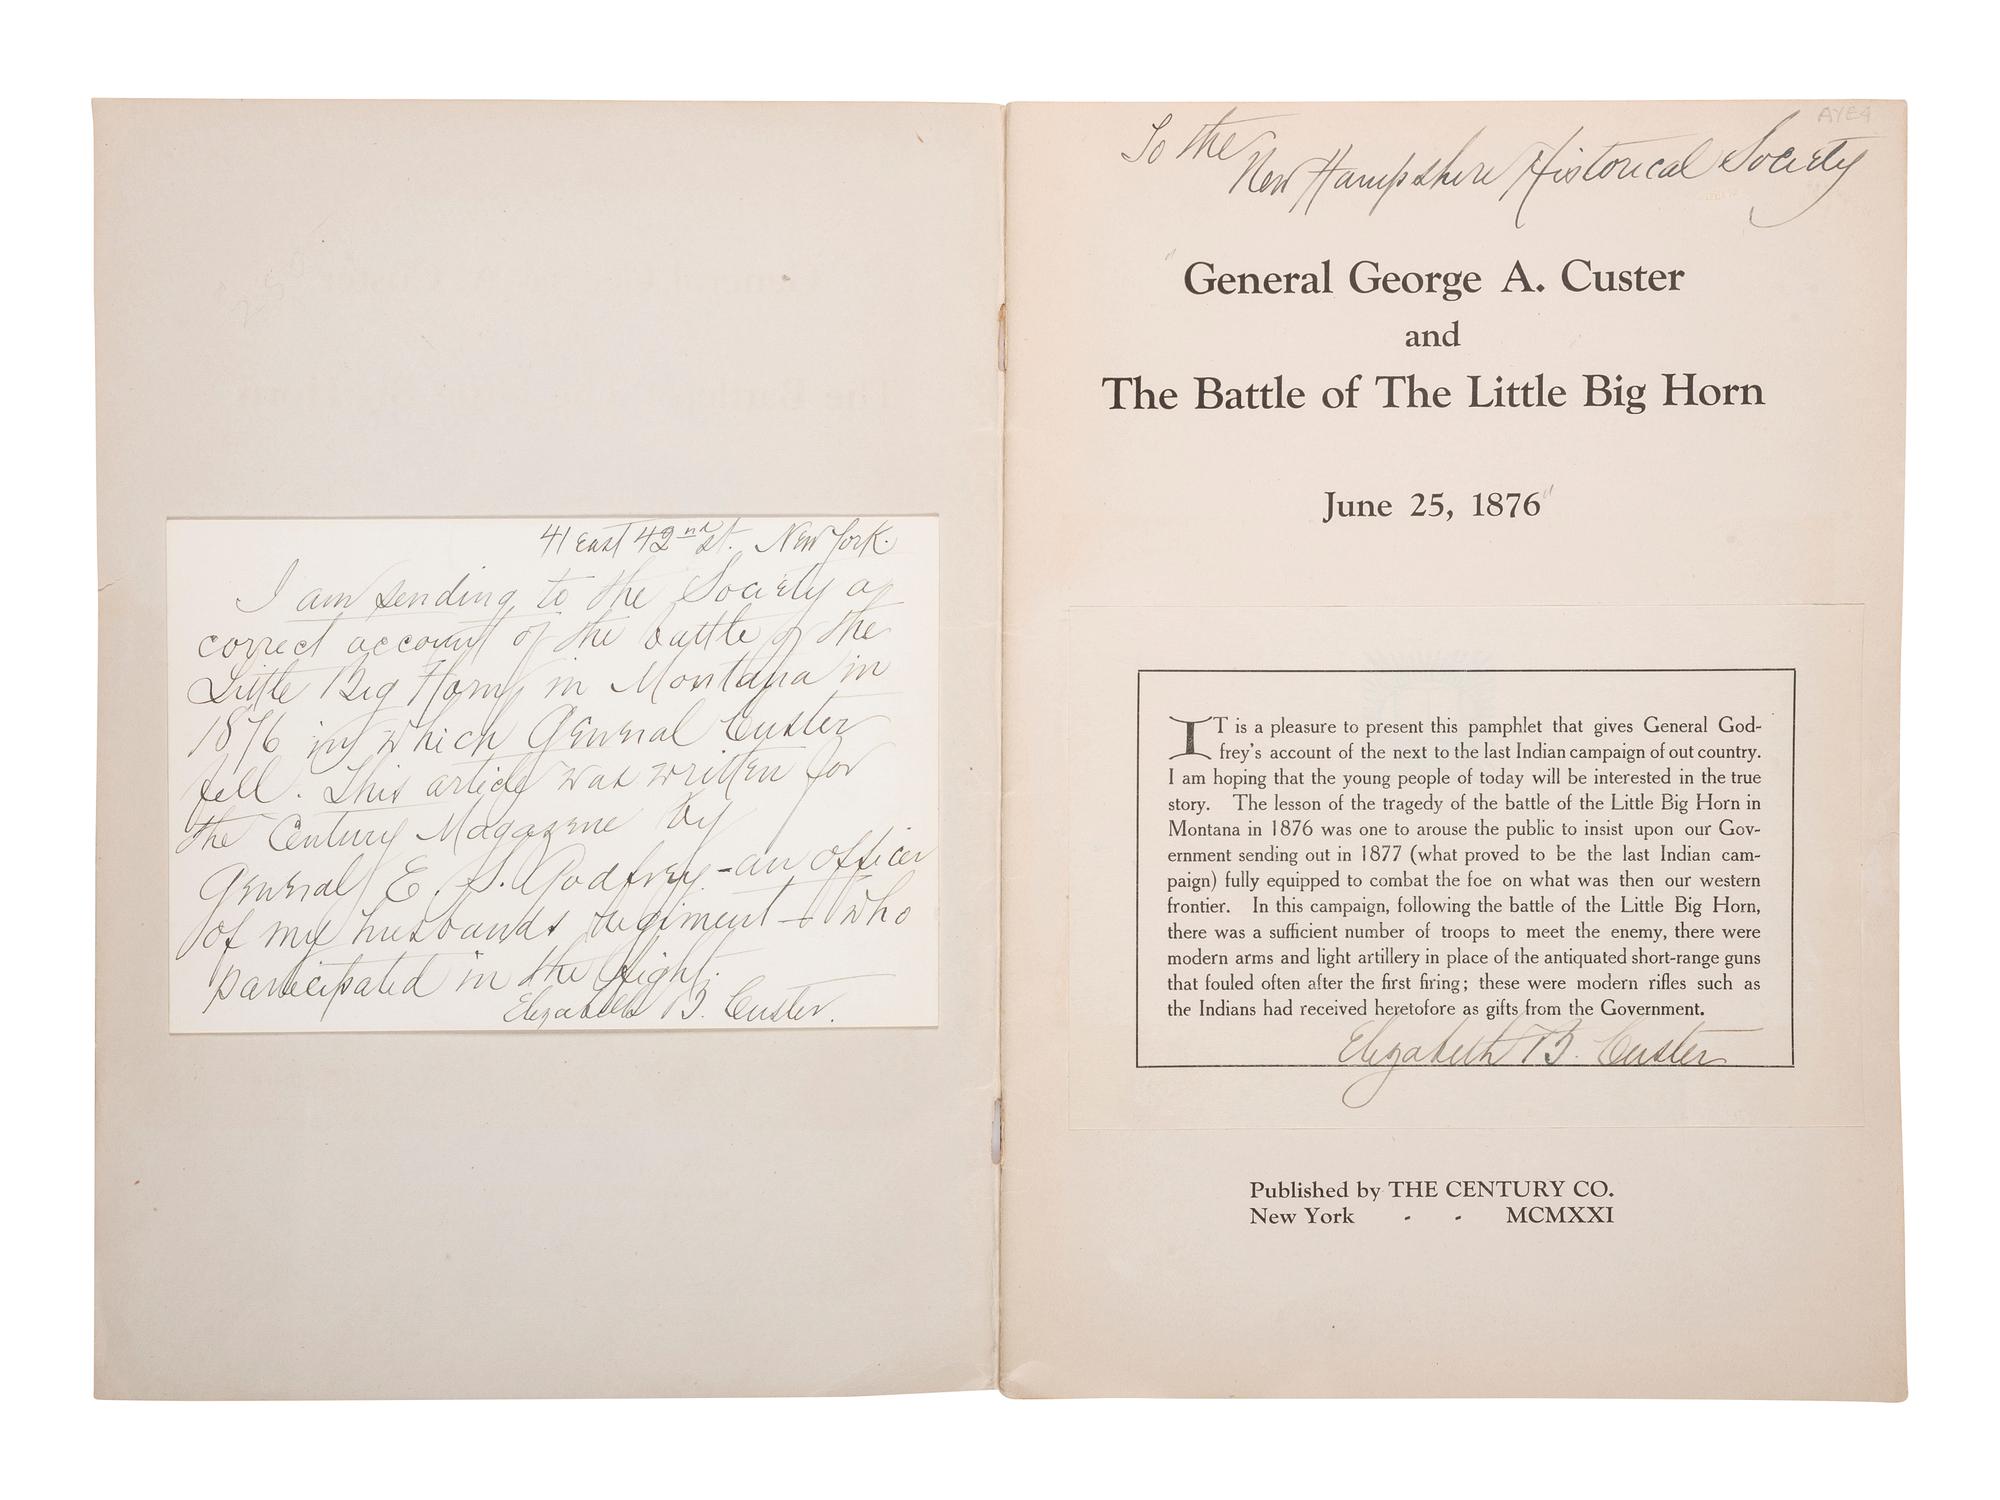 41 East 42nd St. New York.
I am sending to the Society a
correct account of the battle of the
Little Big Horn in Montana in
1876 in which General Custer
fell. This article was written for
the Century Magazine by
General E. S. Godfrey - an officer
of my husbands regiment - who
participated in the fight.
Elizabeth B. Custer.
To the
New Hampshire Historical Society
"General George A. Custer
and
The Battle of The Little Big Horn
June 25, 1876"
IT is a pleasure to present this pamphlet that gives General God-
frey's account of the next to the last Indian campaign of out country.
I am hoping that the young people of today will be interested in the true
story. The lesson of the tragedy of the battle of the Little Big Horn in
Montana in 1876 was one to arouse the public to insist upon our Gov-
ernment sending out in 1877 (what proved to be the last Indian cam-
paign) fully equipped to combat the foe on what was then our western
frontier. In this campaign, following the battle of the Little Big Horn,
there was a sufficient number of troops to meet the enemy, there were
modern arms and light artillery in place of the antiquated short-range guns
that fouled often after the first firing; these were modern rifles such as
the Indians had received heretofore as gifts from the Government.
Elizabeth B. Custer
Published by THE CENTURY CO.
New York - - MCMXXI